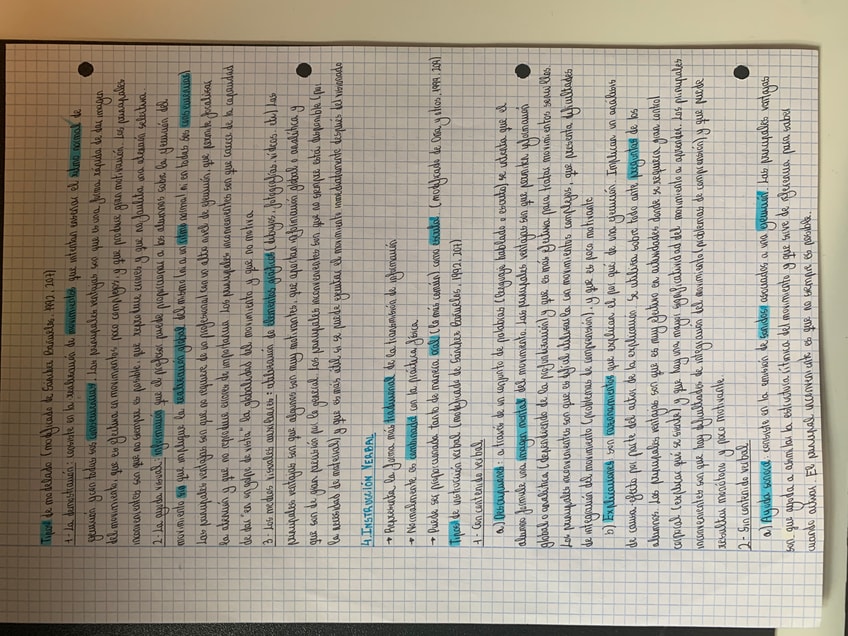 Tipos de modelado (modificado de Sánchez Bañuelos, 1992, 207)
1- La demostración: consiste en la realización de movimientos que intentan enseñar el ritmo normal de
ejecución y con todas sus consecuencias. Las principales ventajas son que es una forma rápida de dar imagen
del movimiento, que es efectiva en movimientos poco complejos, y que produce gran motivación. Los principales
inconvenientes son que no siempre es posible, que reproduce errores y que no facilita una atención selectiva.
2- La ayuda visual: información que el profesor puede proporcionar a los alumnos sobre la ejecución del
movimiento sin que implique la realización global del mismo ni a un ritmo normal ni en todas sus consecuencias.
Las principales ventajas son que no requiere de un profesional con un alto nivel de ejecución, que permite focalizar
la atención y que no reproduce errores de importancia. Los principales inconvenientes son que carece de la capacidad
de dar "en un golpe de vista" la globalidad del movimiento y que no motiva
3- Los medios visuales auxiliares: utilización de elementos gráficos (dibujos, fotografías, vídeos, etc) Las
principales ventajas son que algunos son muy motivantes, que aportan información global o analítica y
que son de gran precisión por lo general. Los principales inconvenientes son que no siempre está disponible (por
la necesidad de materiales) y que es más útil si se puede ejecutar el movimiento inmediatamente después del visionado
4. INSTRUCCIÓN VERBAL
→ Representa la forma más tradicional de la transmisión de información
→ Normalmente es combinada con la práctica física
→ Puede ser proporcionada tanto de manera oral (la más común) como escrita (modificado de Díaz y otros, 1999, 207)
Tipos de instrucción verbal (modificado de Sánchez Bañuelos, 1992, 207)
1- Con contenido verbal
a) Descripciones: a través de un conjunto de palabras (lenguaje hablado o escrito) se intenta que el
alumno formule una imagen mental del movimiento. Las principales ventajas son que permite información
global o analítica (dependiendo de la profundización) y que es más efectiva para tratar movimientos sencillos.
Los principales inconvenientes son que es difícil utilizarla en movimientos complejos, que presenta dificultades
de integración del movimiento (problemas de comprensión), y que es poco motivante
b) Explicaciones: son razonamientos que explican el por qué de una ejecución. Implican un análisis
de causa efecto por parte del autor de la explicación. Se utiliza sobre todo ante preguntas de los
alumnos. Las principales ventajas son que es muy efectiva en actividades donde se requiera gran control
corporal (explica qué se siente) y que hay una mayor significatividad del movimiento a aprender. Los principales
inconvenientes son que hay dificultades de integración del movimiento (problemas de comprensión) y que puede
resultar monótona y poco motivante.
2- Sin contenido verbal
a) Ayuda sonora: consiste en la emisión de sonidos asociados a una ejecución. Las principales ventajas
son que ayuda a asimilar la estructura rítmica del movimiento y que sirve de referencia para saber
cuándo actuar. El principal inconveniente es que no siempre es posible.